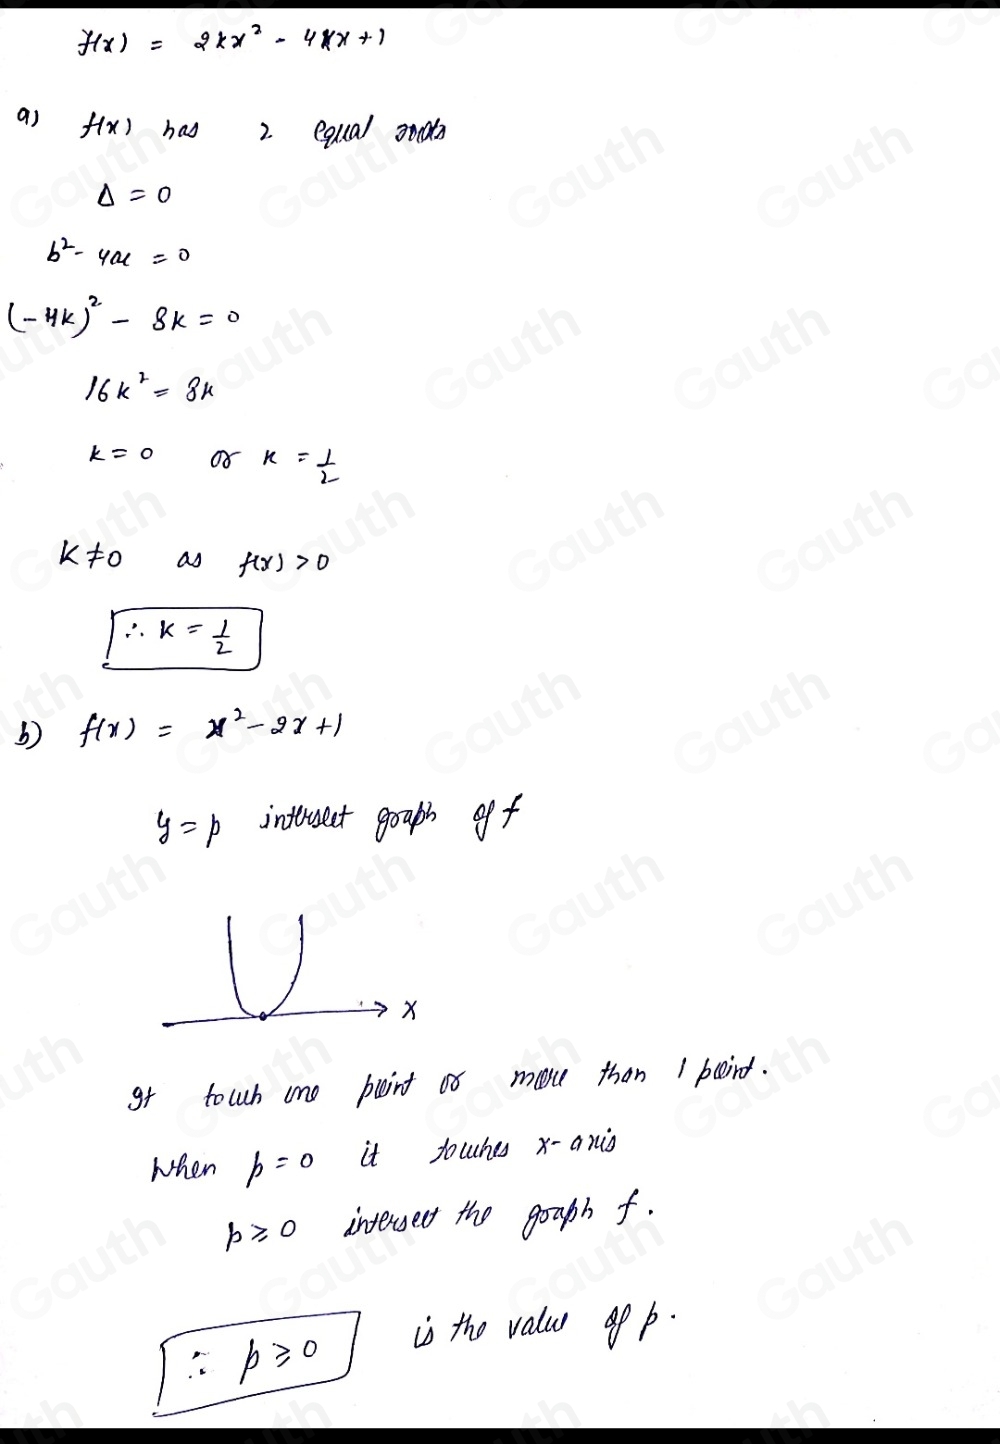 f(x) = 2kx² - 4kx+1
a) f(x) has 2 equal roots
Δ = 0
b² - 4ac = 0
(-4k)² - 8k = 0
16k² = 8k
k = 0 or k = 1/2
k ≠ 0 as f(x) > 0
∴ k = 1/2
b) f(x) = x² - 2x + 1
y = p intersect graph of f
x
It touch one point or more than 1 point.
When p = 0 it touches x-axis
p ≥ 0 intersect the graph f.
∴ p ≥ 0 is the value of p.